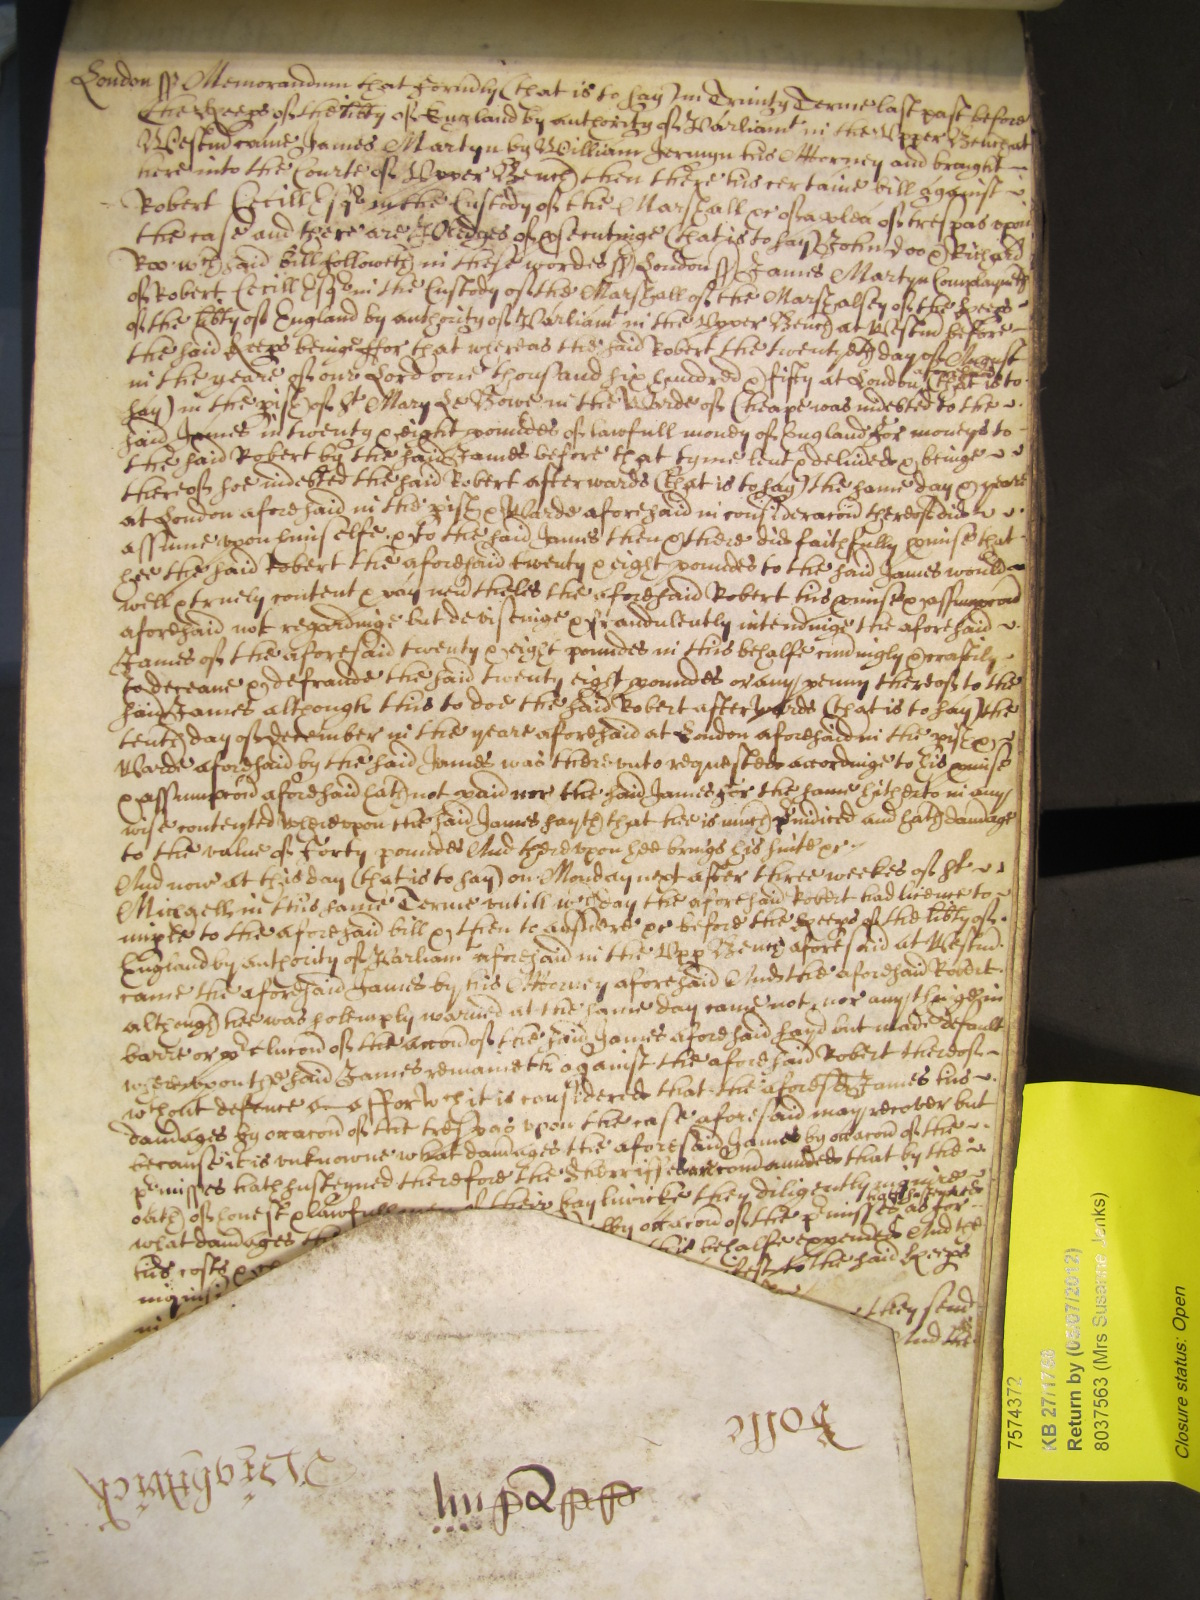 London ss Memorandum that formerly (that is to say) in Trinity Terme last past before
the keeps of the libty of England by authority of Parliamt in the Upper Bench at
Westm came James Martyn by William Jermyn his Attorney and brought
here into the Courte of Upper Bench then there his certaine bill against
Robert Cecill Esqr in the Custody of the Marshall &c of a plea of trespas upon
the case and there are Pledges of psecutinge (that is to say) John Doo & Richard
Roo wch said bill followeth in these wordes ss London ss James Martyn Complayneth
of Robert Cecill Esqr in the Custody of the Marshall of the Marshalsey of the keeps
of the libty of England by authority of Parliamt in the Upper Bench at Westm before
the said keeps beinge ffor that whereas the said Robert the day of August
in the yeare of our Lord one thousand six hundred & fifty at London aforesaid (that is to
say) in the pish of St Mary Le Bowe in the Warde of Cheape was indebted to the
said James in twenty & eight poundes of lawfull money of England for moneys to
the said Robert by the said James before that tyme lent & delived & beinge
thereof soe indebted the said Robert afterwards (that is to say) the same day & yeare
at London aforesaid in the pish & Warde aforesaid in consideracon thereof did
assume upon himselfe & to the said James then & there did faithfully pmise that
hee the said Robert the aforesaid twenty & eight poundes to the said James would
well & truely content & pay nevtheles the aforesaid Robert his pmise & assumpcon
aforesaid not regardinge but devisinge & fraudulently intendinge the aforesaid
James of the aforesaid twenty & eight poundes in this behalfe cuningly & craftily
to deceave & defraude the said twenty eight poundes or any penny thereof to the
said James although this to doe the said Robert afterwards (that is to say) the
tenth day of december in the yeare aforesaid at London aforesaid in the pish &
Warde aforesaid by the said James was thereunto requested accordinge to his pmise
& assumpcon aforesaid hath not paid nor the said James for the same hitherto in any
wise contented whereupon the said James sayth that hee is much piudiced and hath damage
to the value of forty poundes And thereupon hee brings his suite &c
And now at this day (that is to say) on Monday next after three weekes of St
Michaell in this same Terme untill wch day the aforesaid Robert had licence to
imple to the aforesaid bill & then to answere &c before the keeps of the libty of
England by authority of Parliamt aforesaid in the Upp Bench aforesaid at Westm
came the aforesaid James by his Attorney aforesaid And the aforesaid Robert
although hee was solemply warned at the same day came not nor any thinge in
barre or pclucon of the accon of the said James aforesaid sayd but made default
whereupon the said James remaineth against the aforesaid Robert thereof
wthout defence ffor wch it is considered that the aforesd James his
damages by occacon of the trespas upon the case aforesaid may recover but
because it is unknowne what damages the aforesaid James by occacon of the
pmisses hath susteyned therefore the Sherriffes are comaunded that by the
oath of honest & lawfull men of their bayliwicke they diligently inquire
what damages the by occacon of the pmisses as for
his costs this behalfe expended And the
inquisi to the said keeps
in they send
And the
Trahswick
Rolle